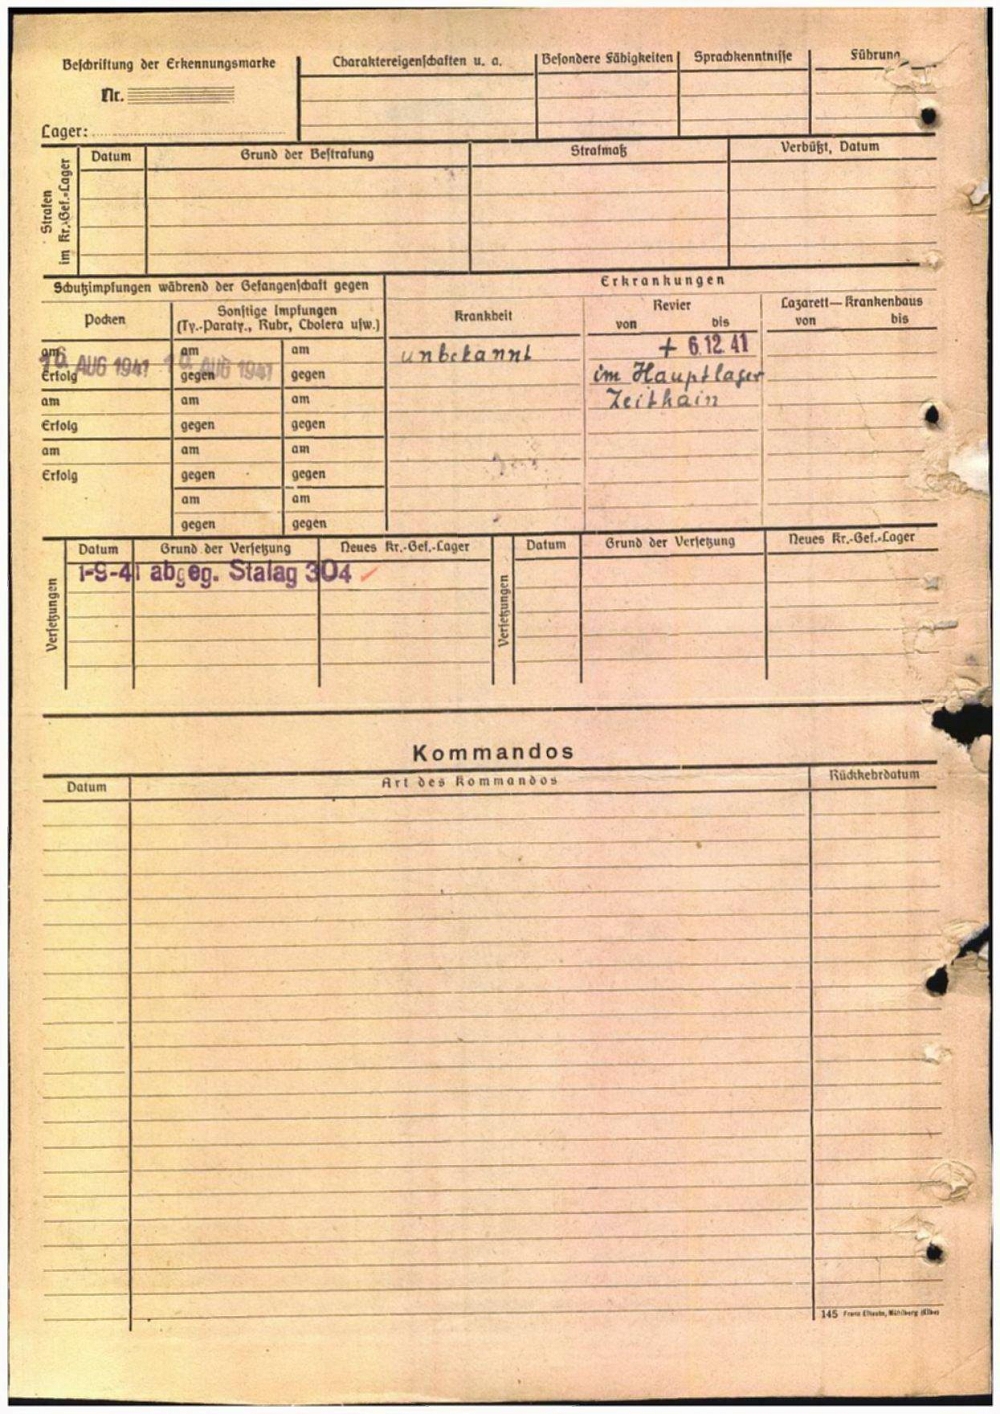 Beschriftung der Erkennungsmarke
Nr.
Lager:
Charaktereigenschaften u. a.
Besondere Fähigkeiten
Sprachkenntnisse
Führung
Strafen
im Kr.-Gef.-Lager
Datum
Grund der Bestrafung
Strafmaß
Verbüßt, Datum
Schutzimpfungen während der Gefangenschaft gegen
Erkrankungen
Pocken
Sonstige Impfungen
(Ty.-Paraty., Ruhr, Cholera usw.)
Krankheit
Revier
von bis
Lazarett—Krankenhaus
von bis
am am am
AUG 1941 AUG 1941
unbekannt
+ 6.12.41
Erfolg gegen gegen
im Hauptlager
am am am
Zeithain
Erfolg gegen gegen
am am am
Erfolg gegen gegen
am am
gegen gegen
Versetzungen
Datum Grund der Versetzung Neues Kr.-Gef.-Lager
1-9-41 abgeg. Stalag 304
Versetzungen
Datum Grund der Versetzung Neues Kr.-Gef.-Lager
Kommandos
Datum Art des Kommandos Rückkehrdatum
145 Mühlberg (Elbe)